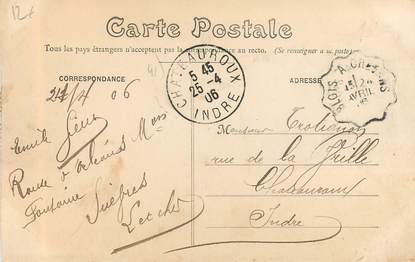 12€
Carte Postale
Tous les pays étrangers n'acceptent pas la correspondance au recto. (Se renseigner à la poste).
CORRESPONDANCE
ADRESSE
24/4 06
Emile
Route d'Orléans Mon
Fontaine Suèvres
Let cher
CHATEAUROUX
5 45
25-4
06
INDRE
BLOIS A
AVRIL
Monsieur
rue de la Grille
Chateauroux
Indre